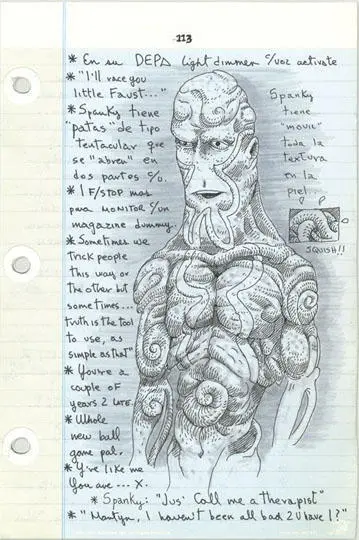 113
* En su DEPA light dimmer c/voz activate
* "I'll race you
little Faust..."
* Spanky tiene
"patas" de tipo
tentacular que
se "abren" en
dos partes %.
* 1 F/STOP mas
para MONITOR S/UN
magazine dummy.
* Sometimes we
trick people
this way or
the other but
sometimes...
truth is the tool
to use, as
simple as that"
* You're a
couple of
years 2 late.
* Whole
new ball
game pal.
* Y've like me
You are --- X.
* Spanky: "Jus' Call me a therapist"
* "Martyn, I haven't been all bad 2 U have I?"
Spanky
tiene
"movil"
toda la
textura
en la
piel...
SQUISH!!